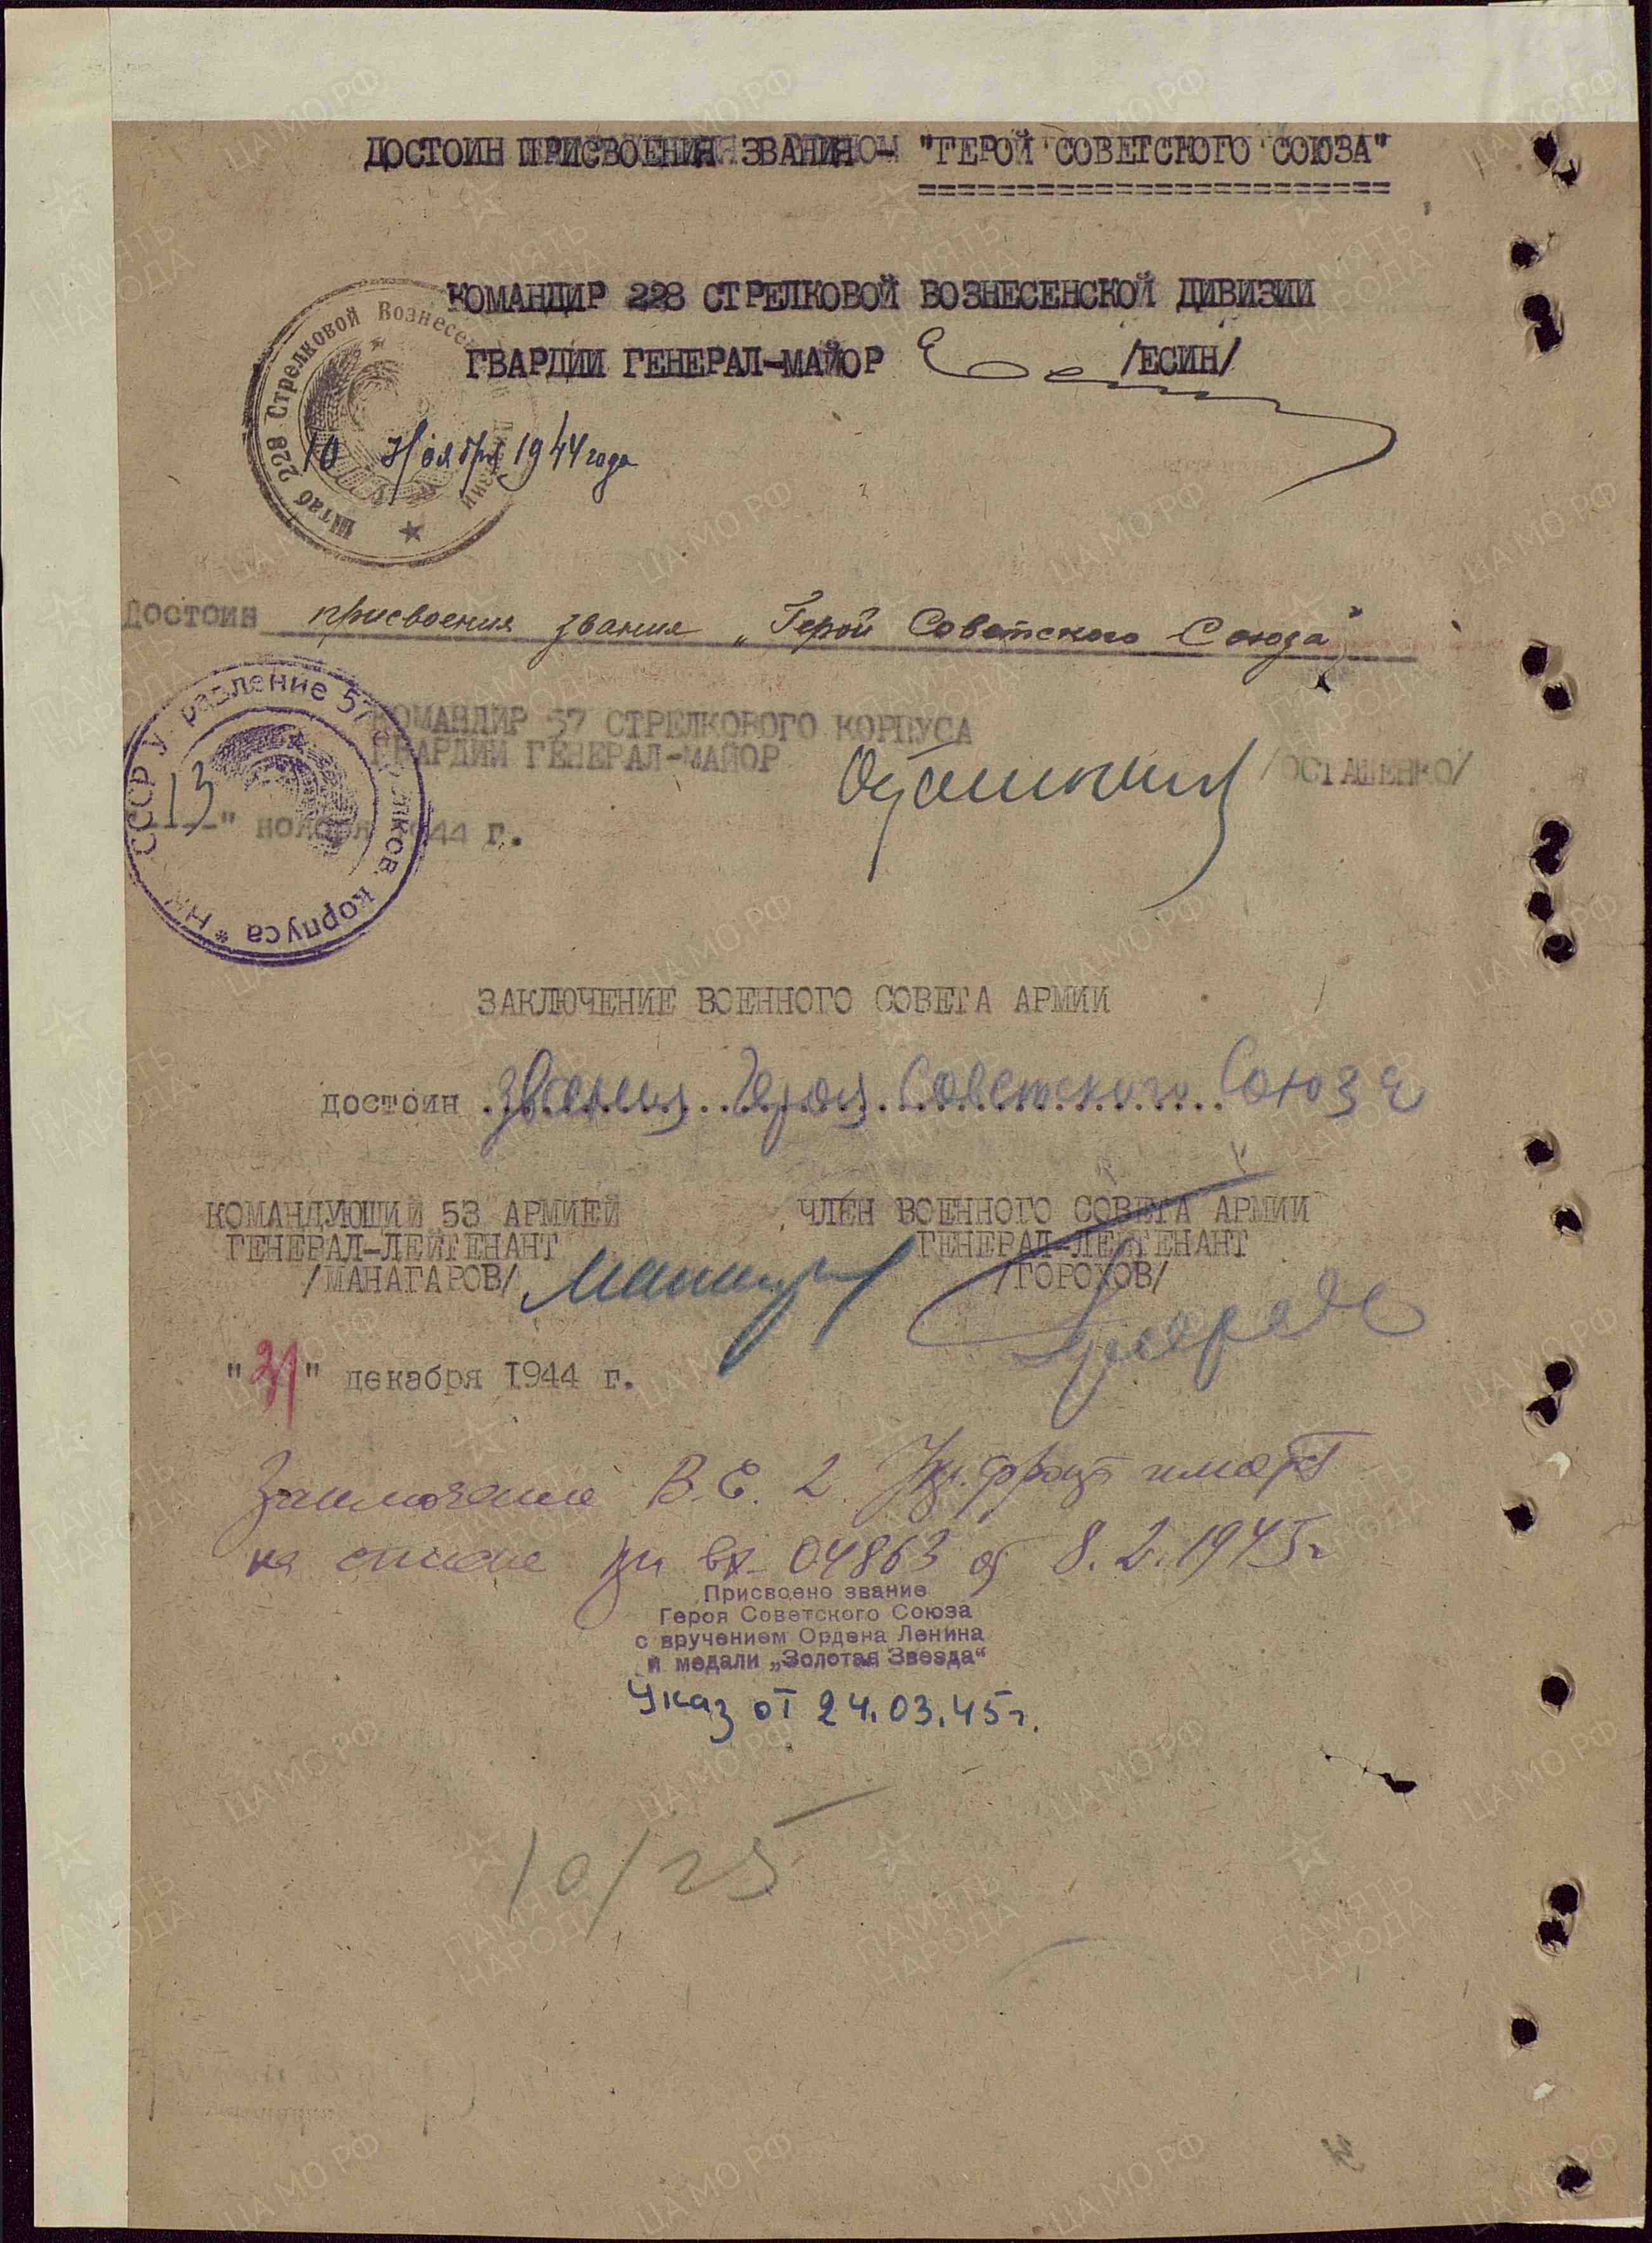 ДОСТОИН ПРИСВОЕНИЯ ЗВАНИЯ - "ГЕРОЙ СОВЕТСКОГО СОЮЗА"
КОМАНДИР 228 СТРЕЛКОВОЙ ВОЗНЕСЕНСКОЙ ДИВИЗИИ
ГВАРДИИ ГЕНЕРАЛ-МАЙОР /ЕСИН/
Штаб 228 Стрелковой Вознесен
10 Ноября 1944 года
Достоин присвоения звания „Герой Советского Союза"
КОМАНДИР 57 СТРЕЛКОВОГО КОРПУСА
ГВАРДИИ ГЕНЕРАЛ-МАЙОР /ОСТАШЕНКО/
НК СССР Управление 57 Стрелков. корпуса *
13" ноября 1944 г.
ЗАКЛЮЧЕНИЕ ВОЕННОГО СОВЕТА АРМИИ
достоин звания Героя Советского Союза
КОМАНДУЮЩИЙ 53 АРМИЕЙ ЧЛЕН ВОЕННОГО СОВЕТА АРМИИ
ГЕНЕРАЛ-ЛЕЙТЕНАНТ ГЕНЕРАЛ-ЛЕЙТЕНАНТ
/МАНАГАРОВ/ /ГОРОХОВ/
"31" декабря 1944 г.
Заключение В.С. 2 Укр. фронта
на списке вх 04863 от 8.2.1945г
Присвоено звание
Героя Советского Союза
с вручением Ордена Ленина
и медали „Золотая Звезда"
Указ от 24.03.45г.
ПАМЯТЬ НАРОДА
ЦА МО РФ